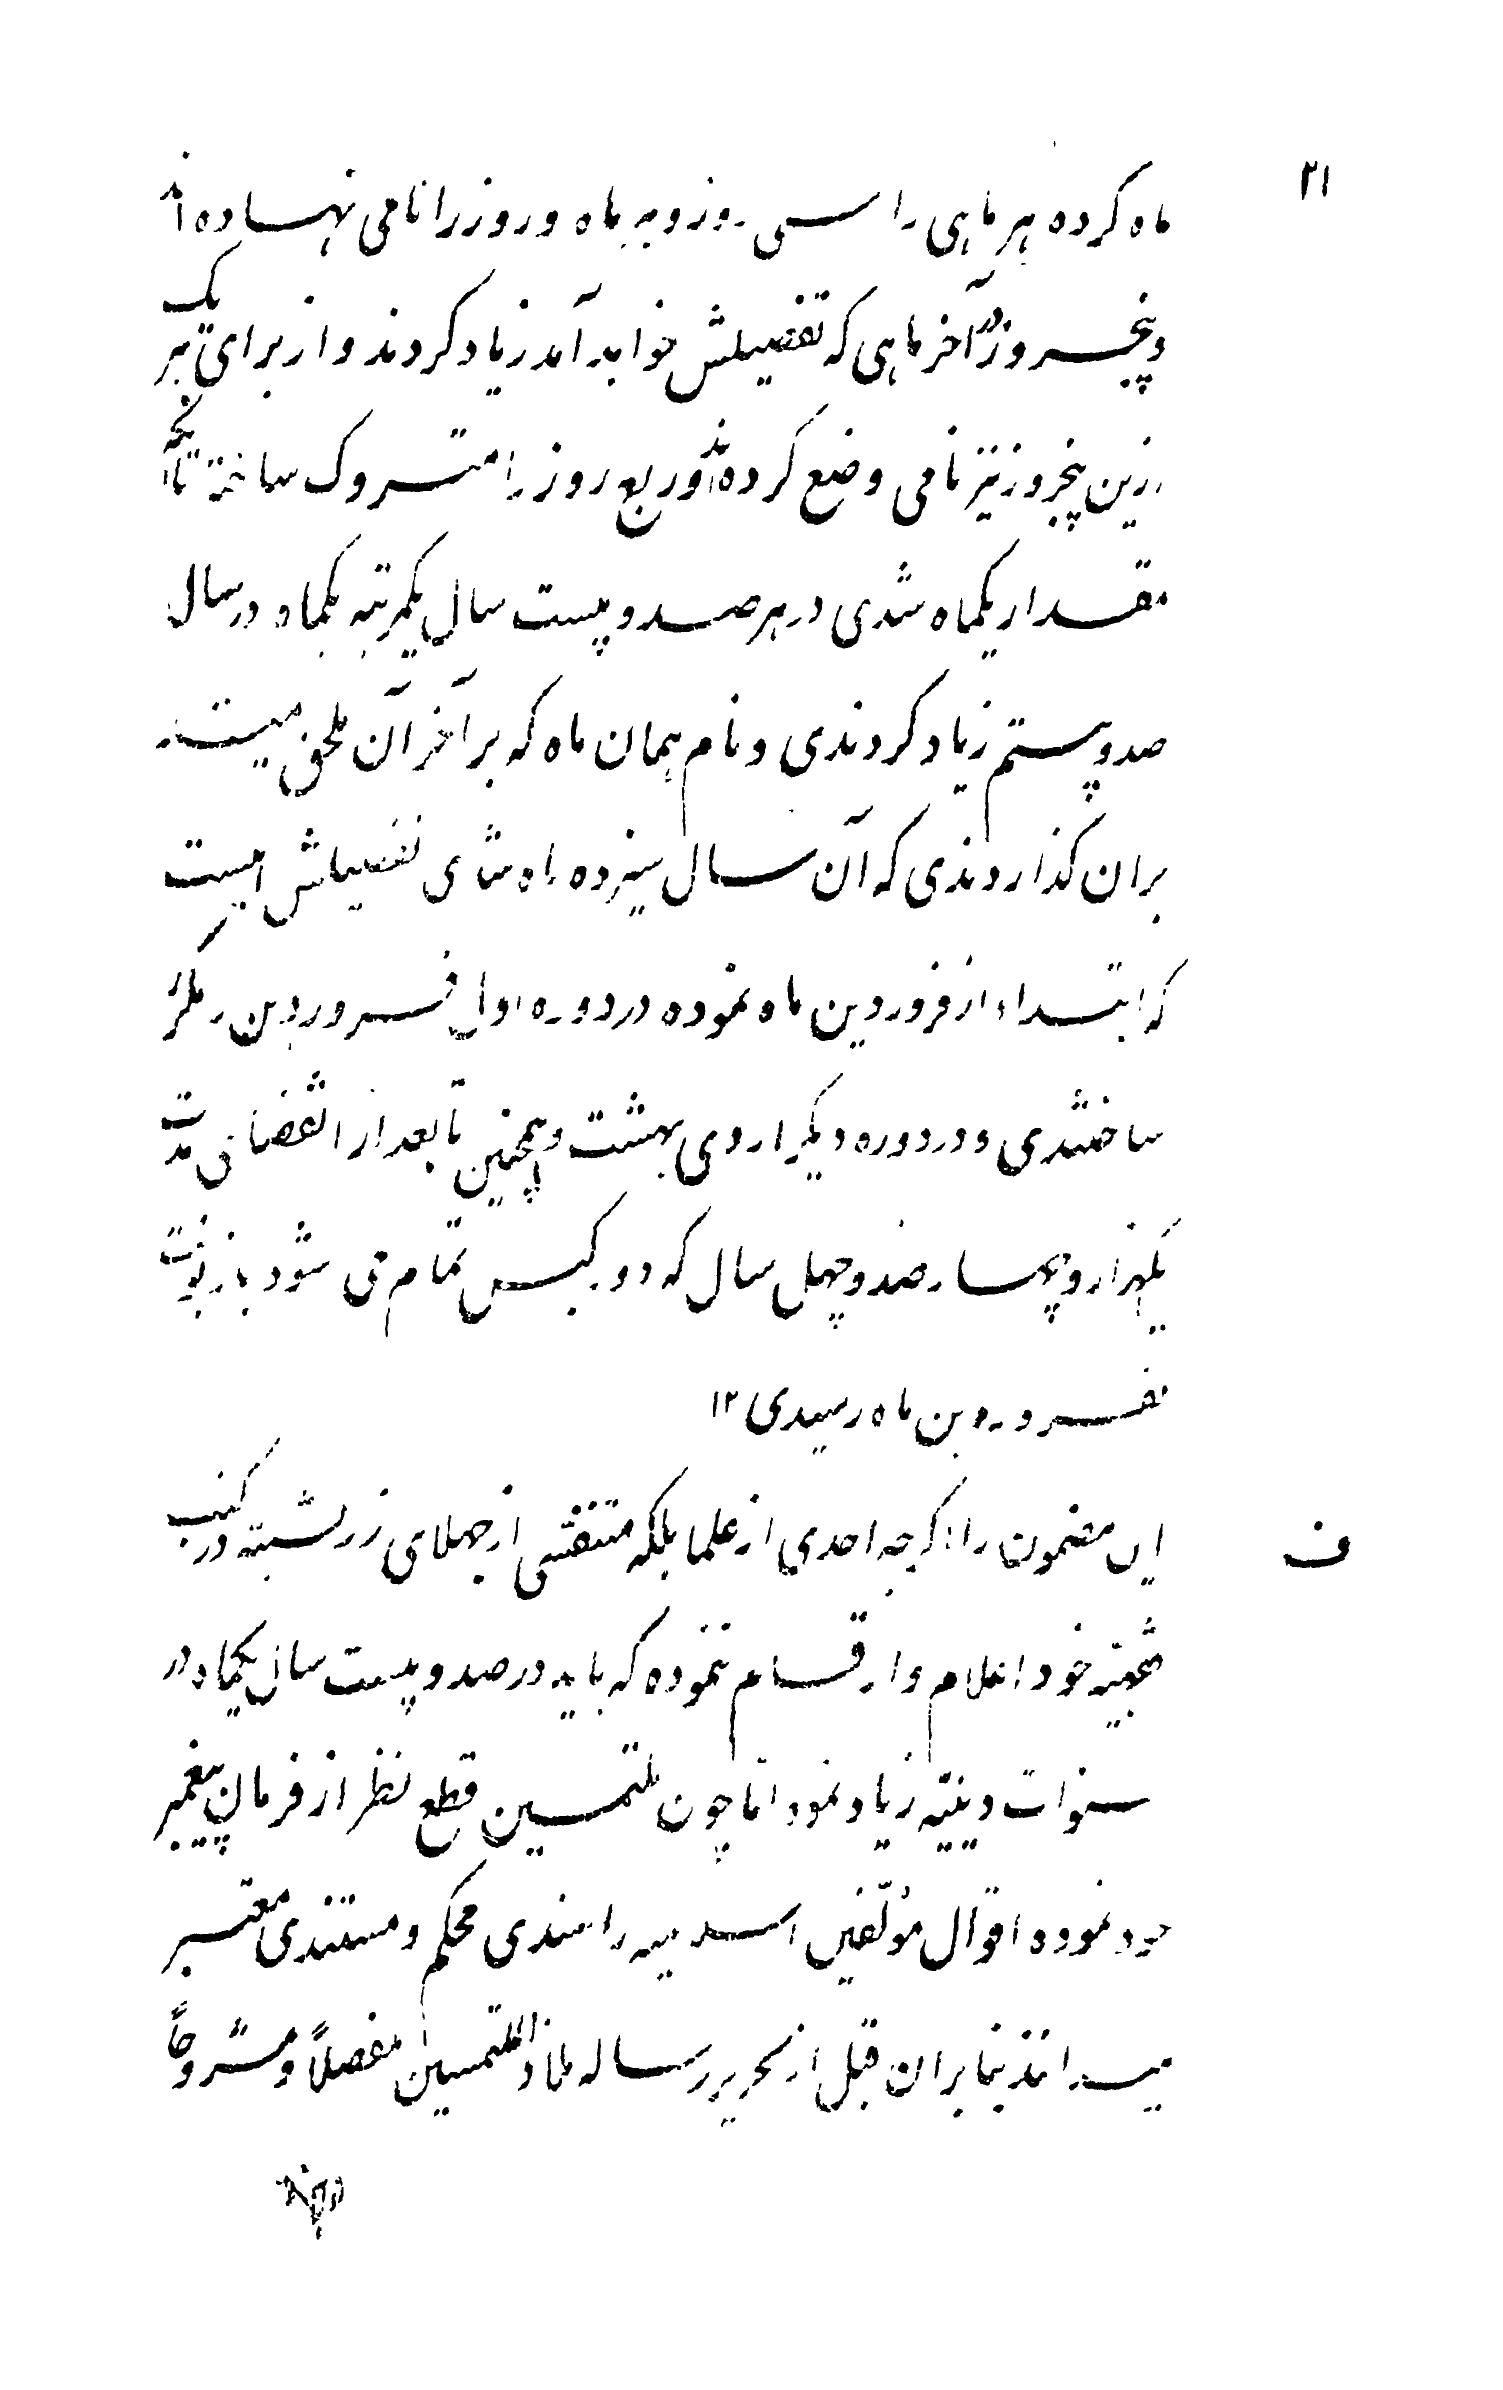 ۲۱
ماه کرده هر ماهی را سی روز و بهر ماه و روز را نامی نهاده اند
و پنجروز در آخر ماهی که تفصیلش خواهد آمد زیاد کردند و از برای هر یک
ازین پنجروز نیز نامی وضع کرده اند و ربع روز را متروک ساخته تا آنکه
مقدار یکماه شدی در هر صد و بیست سال یکمرتبه یکماه در سال
صد و بیستم زیاد کردندی و نام همان ماه که بر آخر آن ملحق میشد
بران گذاردندی که آن سال سیزده ماه شدی تفصیلش اینست
که ابتداء از فروردین ماه نموده در دوره اول فروردین را مکرر
ساختندی و در دوره دیگر اردی بهشت و همچنین تا بعد از انقضای مدت
یکهزار و چهارصد و چهل سال که دور کبس تمام می شود باز نوبت
بفروردین ماه رسیدی ۱۲
ف
این مضمون را اگرچه احدی از علما بلکه متنفسی از جهلای زردشتیه در کتب
خود اعلام و ارقام ننموده که باید در صد و بیست سال یکماه در
سنوات دینیّه زیاد نمود امّا چون ملتمسین قطع نظر از فرمان پیغمبر
خود نموده اقوال مؤلّفین اسلامیه را سندی محکم و مستندی معتبر
میدانند بنابران قبل از تحریر رساله ملاذ الملتمسین مفصلاً و مشروحاً